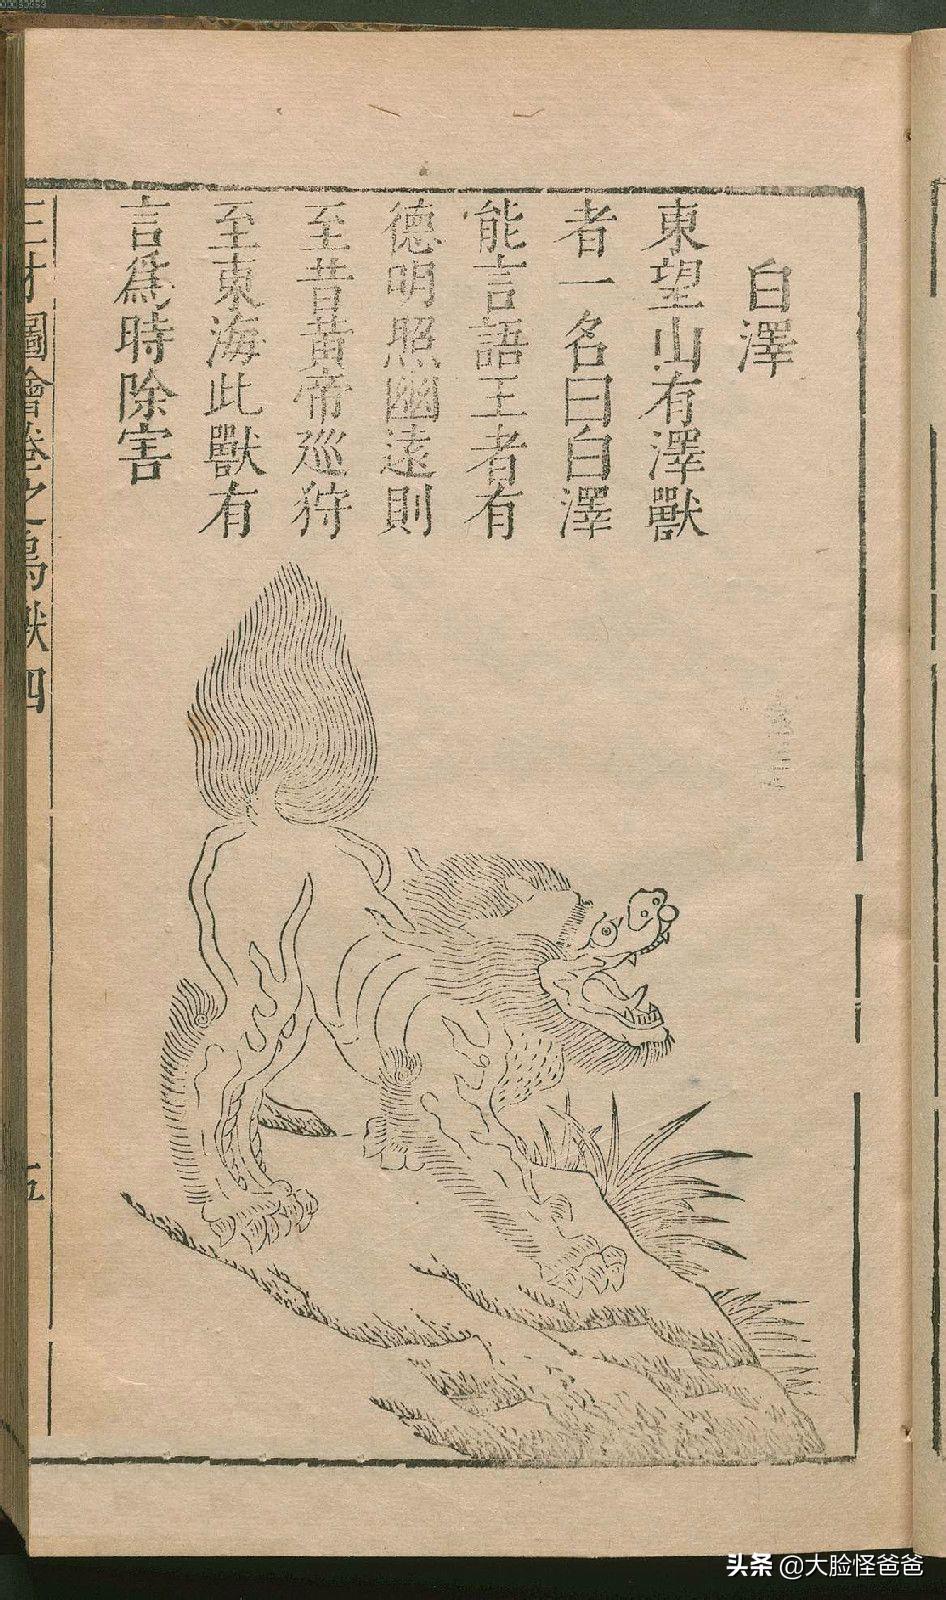 白澤
東望山有澤獸
者一名曰白澤
能言語王者有
德明照幽遠則
至昔黃帝巡狩
至東海此獸有
言爲時除害
三才圖會卷之鳥獸四
五
头条 @大脸怪爸爸